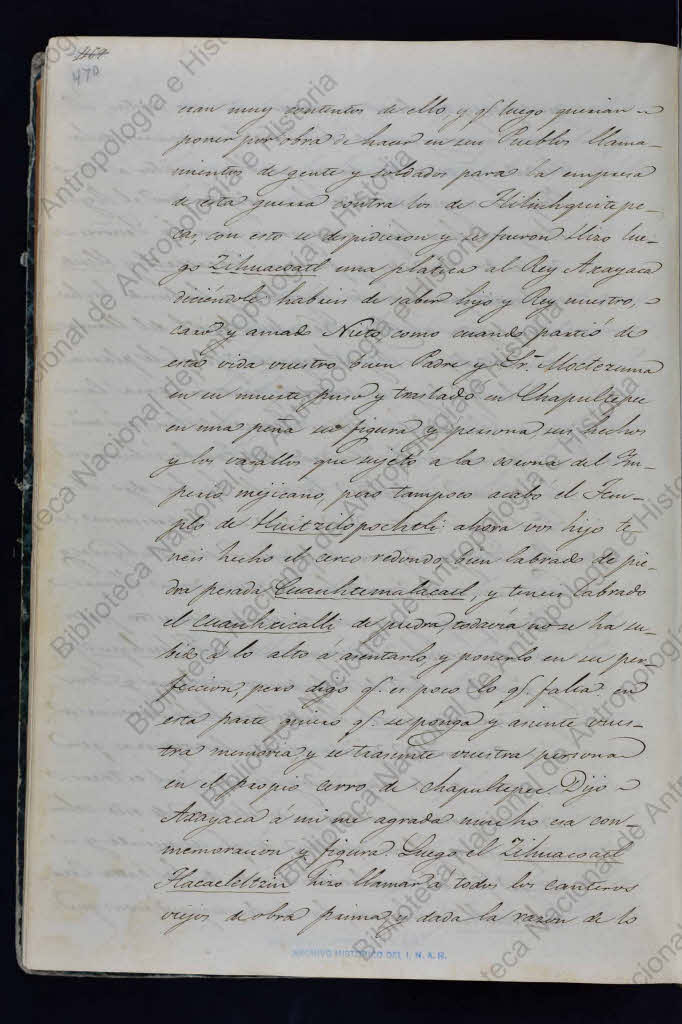 464
470
eran muy contentos de ello, y q.e luego querian
poner por obra de hacer en sus Pueblos llama-
mientos de gente y soldados para la empresa
de esta guerra contra los de Tliliuhquitepe-
cas, con esto se despidieron y se fueron. Hizo lue-
go Zihuacoatl una platica al Rey Axayaca
diciendole: habeis de saber hijo y Rey nuestro,
caro y amado Nieto, como cuando partió de
esta vida vuestro buen Padre y Sr. Moctezuma
en su muerte puso y traslado en Chapultepec
en una peña su figura y persona, sus hechos
y los vasallos que sujeto a la corona del Im-
perio mejicano, pero tampoco acabo el Tem-
plo de Huitzilopochtli: ahora vos hijo te-
neis hecho el cerco redondo bien labrado de pie-
dra pesada Cuauhtemalacatl, y teneis labrado
el Cuauhxicalli de piedra, todavia no se ha su-
bido á lo alto á asentarlo y ponerlo en su per-
feccion, pero digo q.e es poco lo q.e falta: en
esta parte quiero q.e se ponga y asiente vues-
tra memoria, y se trasunte vuestra persona
en el propio cerro de Chapultepec. Dijo
Axayaca á mi me agrada mucho esa con-
memoracion y figura. Luego el Zihuacoatl
Tlacaeleltzin hizo llamar á todos los canteros
viejos de obra prima, y dada la razon de lo
ARCHIVO HISTORICO DEL I. N. A. H.
Biblioteca Nacional de Antropología e Historia